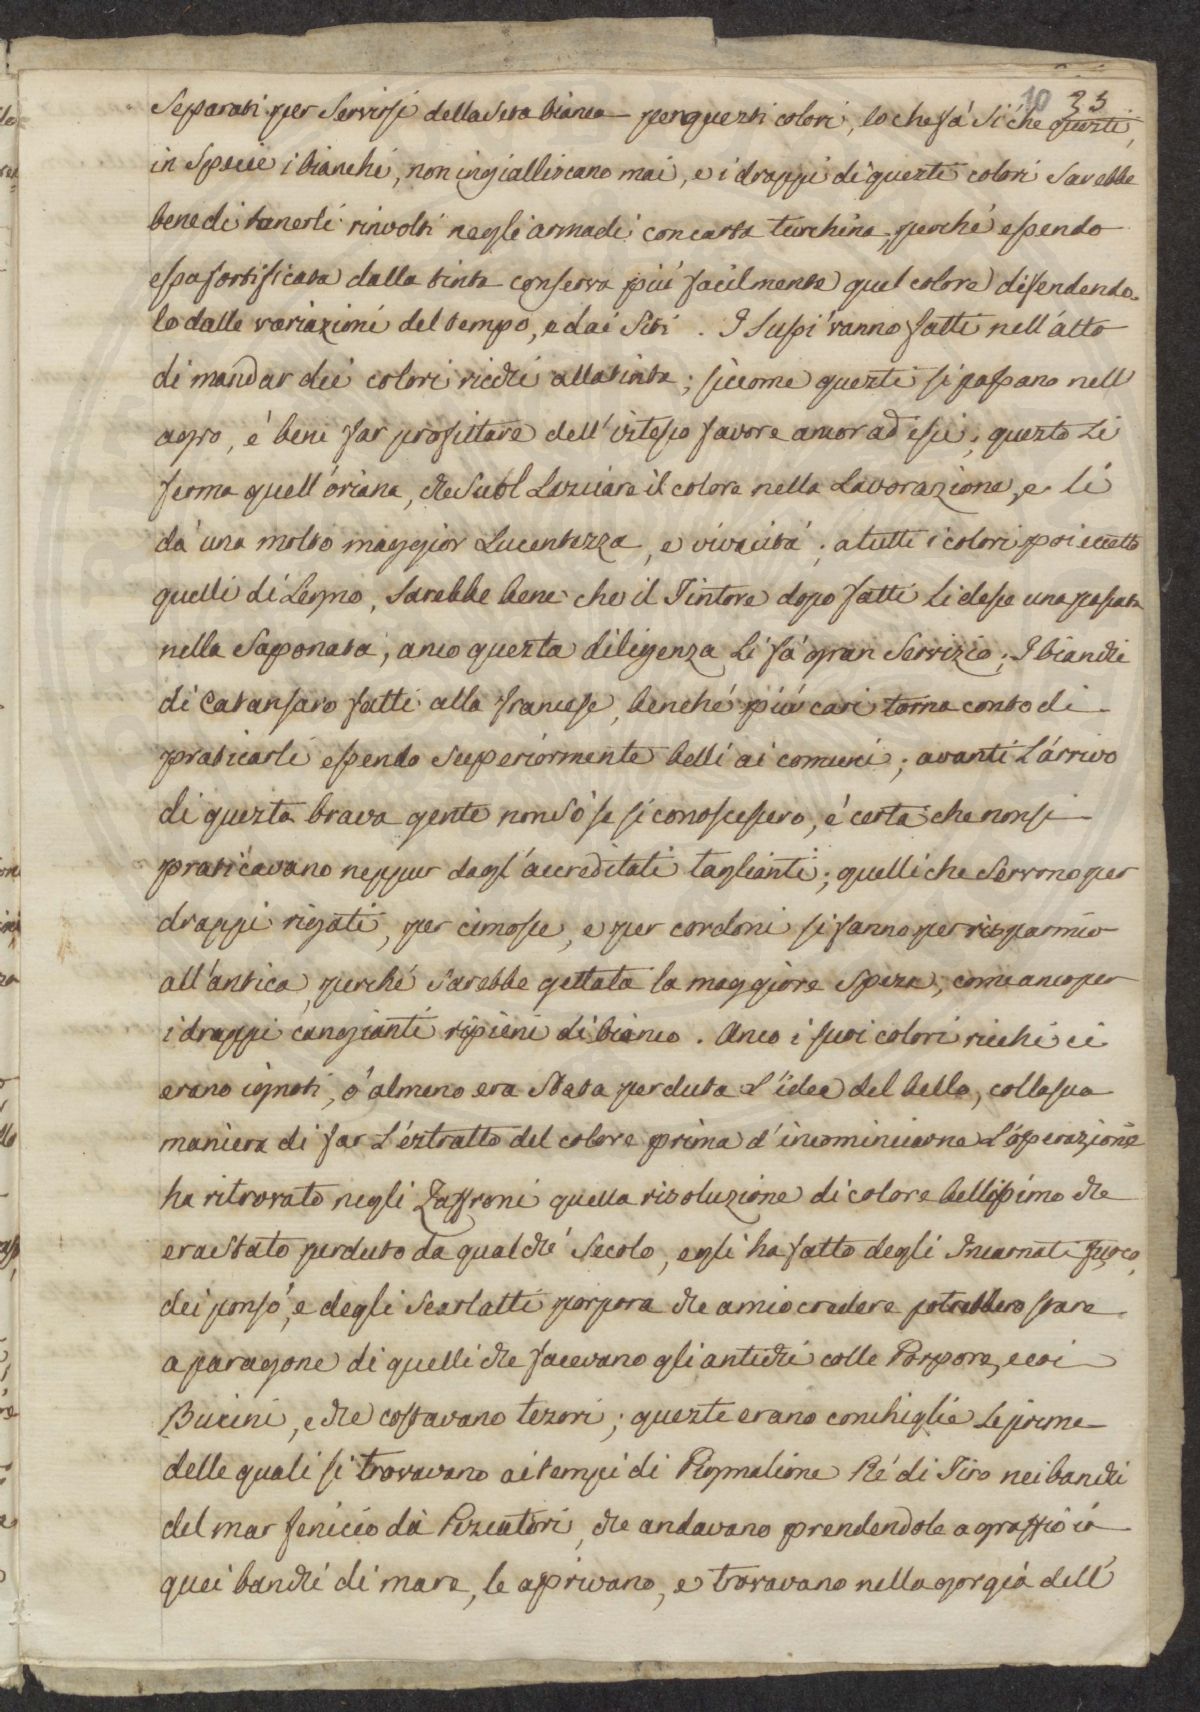 10 35
Separati per Servirsi della Seta bianca per questi colori, lo che fà Sì che questi,
in Specie i bianchi, non ingialliscano mai, e i drappi di queste colori Sarebbe
bene di tenerli rinvolti negli armadi con carta turchina, perché essendo
essa fortificata dalla tinta conserva più facilmente quel colore difendendo-
lo dalle variazioni del tempo, e dai Siti. I Supi vanno fatti nell'atto
di mandar dei colori ricchi alla tinta; siccome questi si passano nell'
agro, è bene far profittare dell'istesso favore ancor ad essi, questo Li
ferma quell' oriana, che Suol Lasciare il colore nella Lavorazione, e Li
dà una molto maggior Lucentezza, e vivacità; a tutti i colori poi eccetto
quelli di Legno, Sarebbe bene che il Tintore dopo fatti Li desse una passata
nella Saponata, anco questa diligenza Li fà gran Servizio; I bianchi
di Catansaro fatti alla francese, benché più cari torna conto di
praticarli essendo Superiormente belli ai comuni; avanti L'arrivo
di questa brava gente non Sò se si conoscessero, è certa che non si
praticavano neppur dagl' accreditati taglianti; quelli che Servono per
drappi rigati, per cimosse, e per cordoni si fanno per risparmio
all'antica, perché Sarebbe gettata la maggiore Speza, come anco per
i drappi cangianti ripieni di bianco. Anco i suoi colori ricchi ci
erano ignoti, ò almeno era Stata perduta L'idea del bello, colla sua
maniera di far L'estratto del colore prima d'incominciarne L'operazione
ha ritrovato negli Zaffroni quella risoluzione di colore bellissimo che
era Stato perduto da qualche Secolo, egli ha fatto degli Incarnati fuoco,
dei ponsò, e degli Scarlatti porpora che a mio credere potrebbero stare
a paragone di quelli che facevano gli antichi colle Porpore, e coi
Bucini, e che costavano tezori; queste erano conchiglie Le prime
delle quali si trovavano ai tempi di Pigmalione Ré di Tiro nei banchi
del mar fenicio dà Pezcatori, che andavano prendendole a graffio in
quei banchi di mare, le aprivano, e trovavano nella gorgia dell'